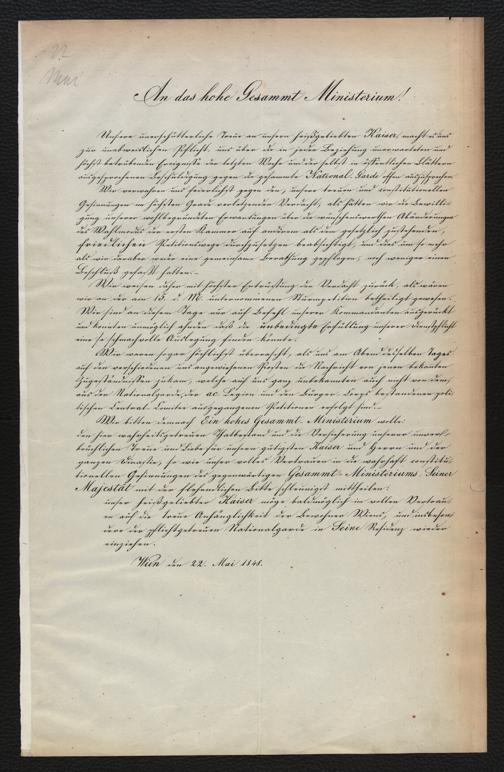 22
Mai
An das hohe Gesammt Ministerium!
Unsere unerschütterliche Treue an unsern heißgeliebten Kaiser, macht es uns
zur unabweislichen Pflicht, uns über die in jeder Beziehung unerwarteten und
höchst betrübenden Ereignisse der letzten Woche und der selbst in öffentlichen Blättern
ausgesprochenen Beschuldigung gegen die gesammte National-Garde offen auszusprechen.
Wir verwahren uns feierlichst gegen den, unsere treuen und constitutionellen
Gesinnungen im höchsten Grade verletzenden Verdacht, als hätten wir die Bewilli-
gung unserer wohlbegründeten Erwartungen über die wünschenswerthen Abänderungen
des Wahlmodus der ersten Kammer auf anderem als dem gesetzlich zustehenden,
friedlichen Petitionswege durchzusetzen beabsichtigt, und dies um so mehr
als wir darüber weder eine gemeinsame Berathung gepflogen, noch weniger einen
Beschluß gefaßt hatten.
Wir weisen daher mit höchster Entrüstung den Verdacht zurück, als wären
wir an der am 15. d. M. unternommenen Sturmpetition betheiligt gewesen.
Wir sind an diesem Tage nur auf Befehl unserer Kommandanten ausgerückt
und konnten unmöglich ahnden daß die unbedingte Erfüllung unserer Dienstpflicht
eine so schmachvolle Auslegung finden könnte.
Wir waren sogar höchlichst überrascht, als uns am Abend desselben Tages
auf den verschiedenen uns angewiesenen Posten die Nachricht von jenen bekannten
Zugeständnissen zukam, welche auf uns ganz unbekannten auch nicht von dem,
aus der Nationalgarde, der ac. Legion und den Bürger Corps bestandenen poli-
tischen Central Comitee ausgegangenen Petitionen erfolgt sind.
Wir bitten demnach Ein hohes Gesammt Ministerium wolle
den hier wahrheitsgetreuen Thatbestand und die Versicherung unserer unver-
brüchlichen Treue und Liebe für unsern gütigsten Kaiser und Herrn und der
ganzen Dinastie, so wie unser volles Vertrauen in die wahrhaft constitu-
tionellen Gesinnungen des gegenwärtigen Gesammt Ministeriums, Seiner
Majestät mit der flehendlichen Bitte schleunigst mittheilen:
unser heißgeliebter Kaiser möge baldmöglich in vollem Vertrau-
en auf die treue Anhänglichkeit der Bewohner Wiens, und insbeson-
dere der pflichtgetreuen Nationalgarde in Seine Residenz wieder
einziehen.
Wien den 22. Mai 1848.